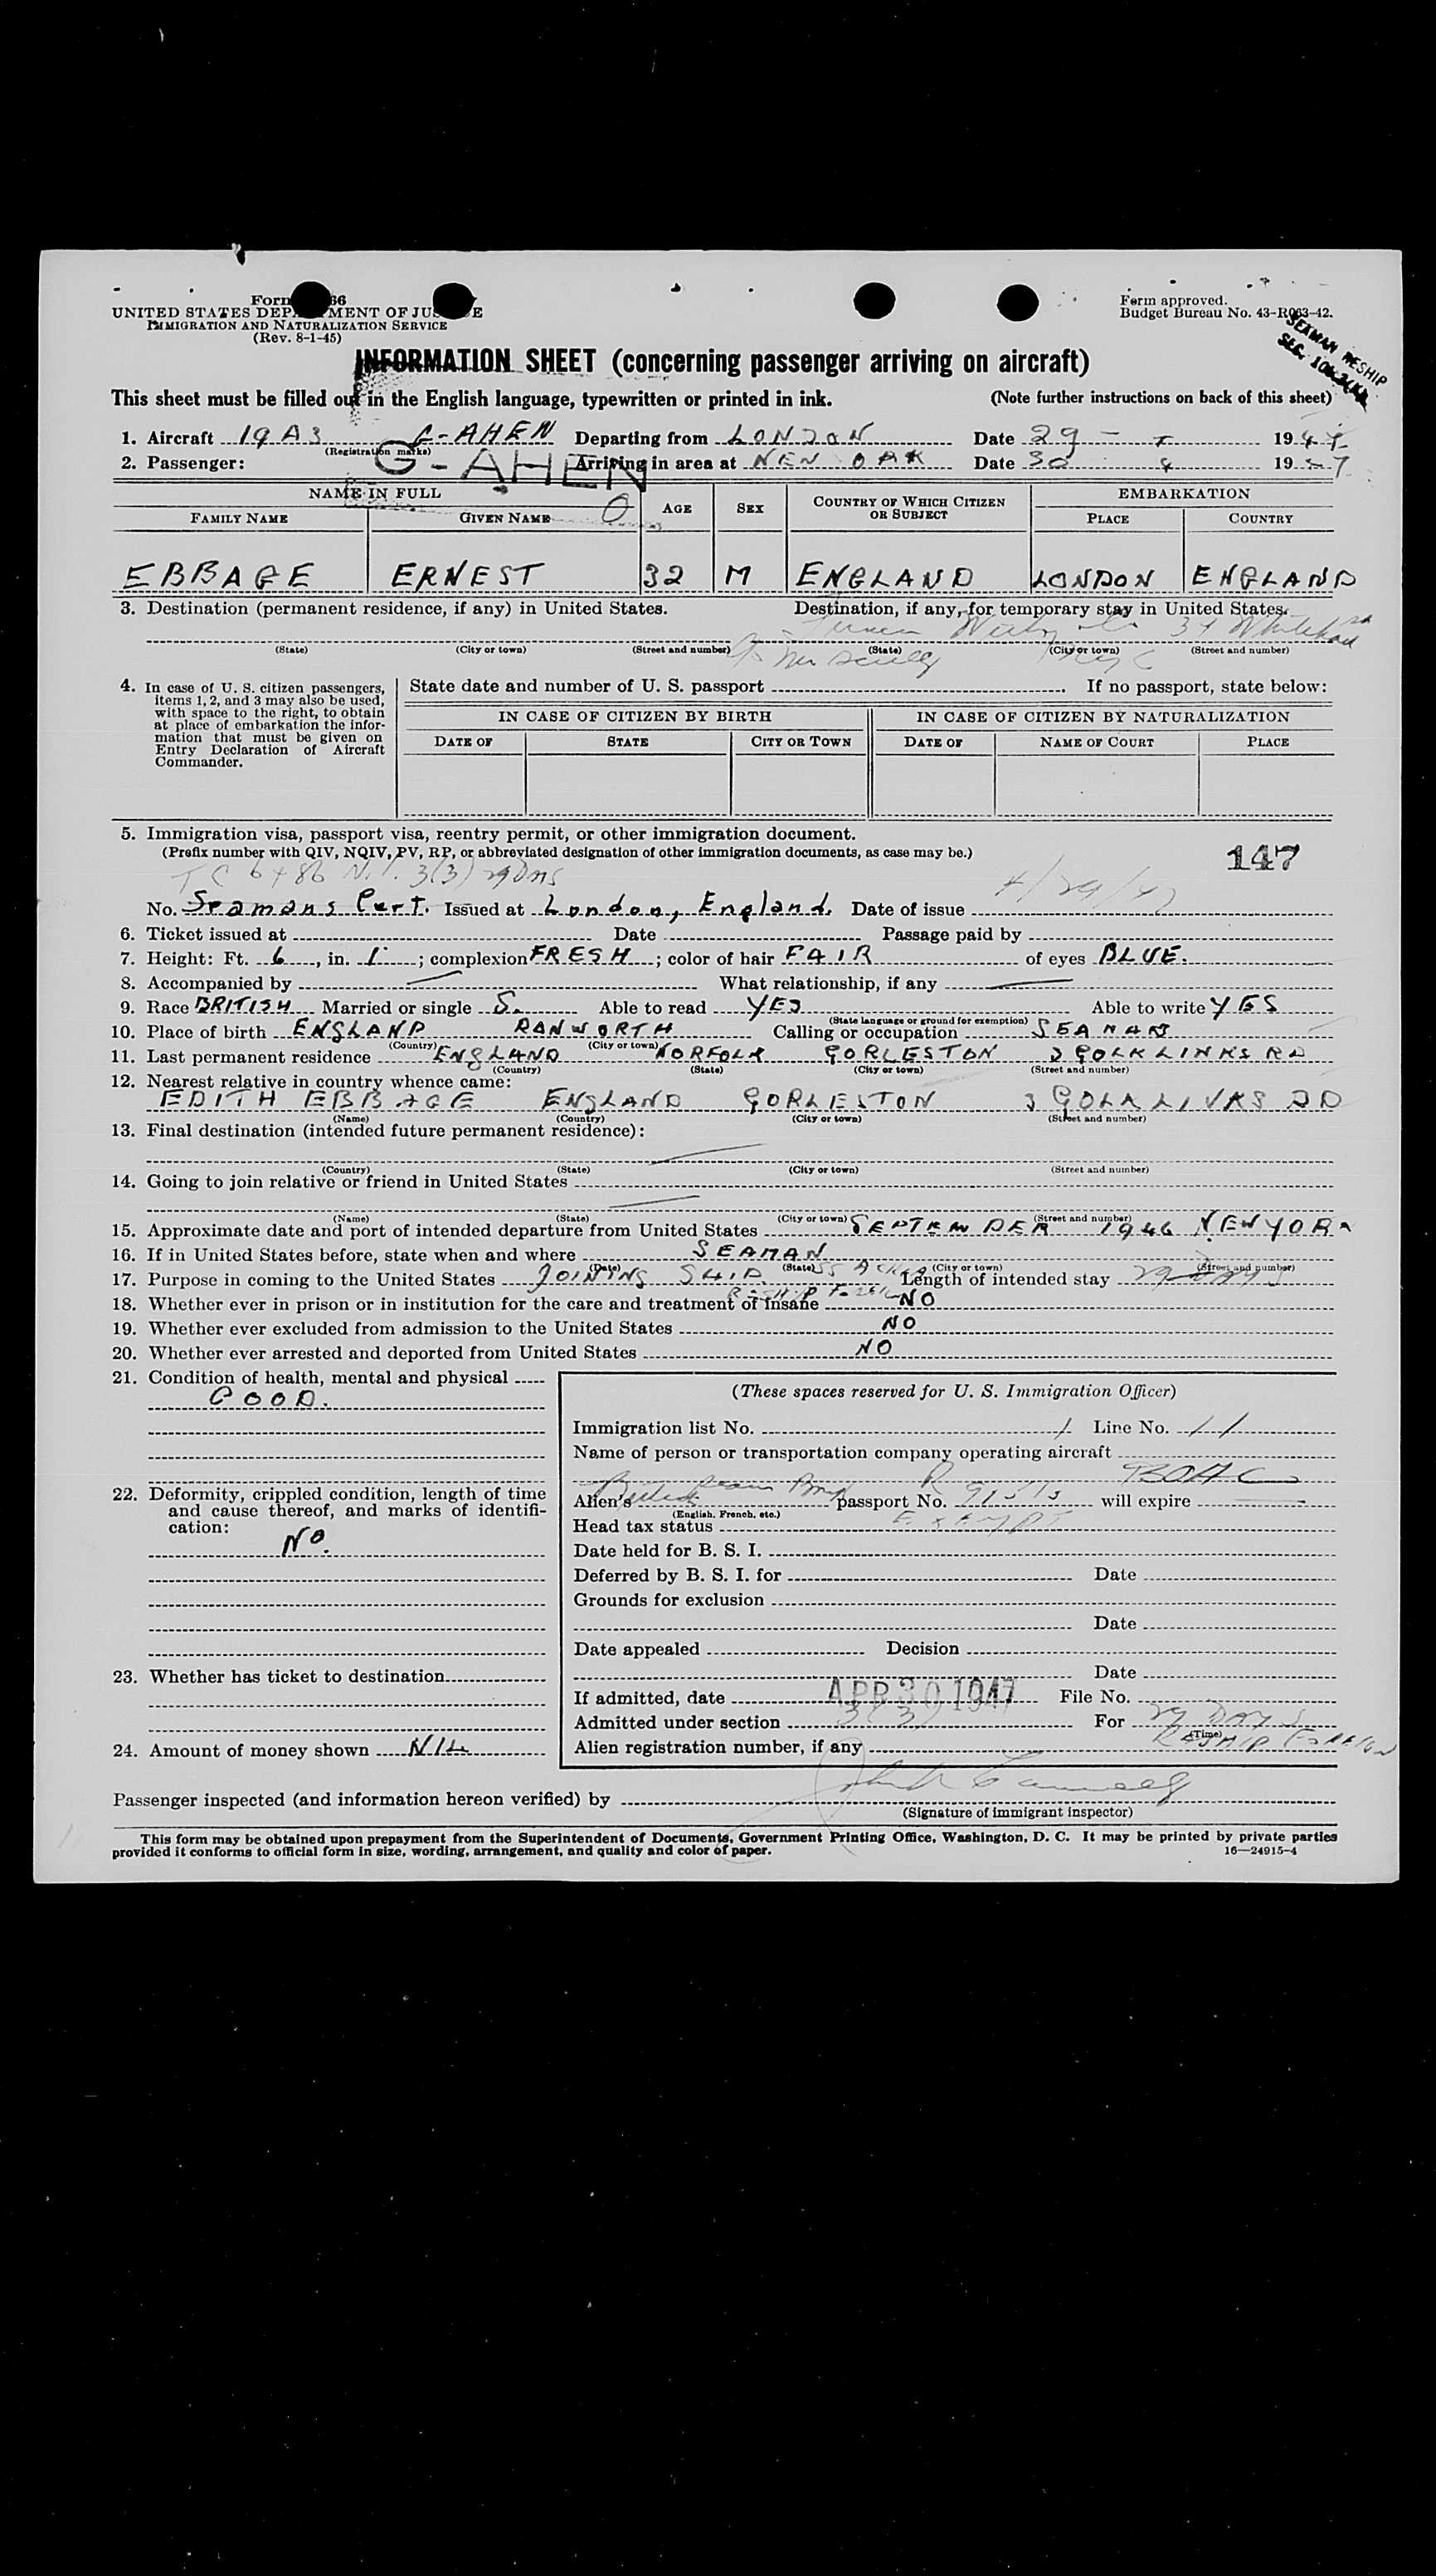 Form 66
UNITED STATES DEPARTMENT OF JUSTICE
IMMIGRATION AND NATURALIZATION SERVICE
(Rev. 8-1-45)
Form approved.
Budget Bureau No. 43-R063-42.
SEAMAN RESHIP
SEC.
INFORMATION SHEET (concerning passenger arriving on aircraft)
This sheet must be filled out in the English language, typewritten or printed in ink. (Note further instructions on back of this sheet)
1. Aircraft G-AHEN Departing from LONDON Date 29 - 19
(Registration marks)
2. Passenger: G-AHEN Arriving in area at Date 30 19
NAME IN FULL AGE SEX COUNTRY OF WHICH CITIZEN OR SUBJECT EMBARKATION
FAMILY NAME GIVEN NAME PLACE COUNTRY
EBBAGE ERNEST 32 M ENGLAND LONDON ENGLAND
3. Destination (permanent residence, if any) in United States. Destination, if any, for temporary stay in United States.
(State) (City or town) (Street and number) (State) (City or town) (Street and number)
4. In case of U. S. citizen passengers, items 1, 2, and 3 may also be used, with space to the right, to obtain at place of embarkation the information that must be given on Entry Declaration of Aircraft Commander.
State date and number of U. S. passport If no passport, state below:
IN CASE OF CITIZEN BY BIRTH IN CASE OF CITIZEN BY NATURALIZATION
DATE OF STATE CITY OR TOWN DATE OF NAME OF COURT PLACE
5. Immigration visa, passport visa, reentry permit, or other immigration document.
(Prefix number with QIV, NQIV, PV, RP, or abbreviated designation of other immigration documents, as case may be.)
147
4/29/47
No. Seamans Cert. Issued at London, England. Date of issue
6. Ticket issued at Date Passage paid by
7. Height: Ft. 6, in. 1; complexion FRESH; color of hair FAIR of eyes BLUE.
8. Accompanied by What relationship, if any
9. Race BRITISH Married or single S. Able to read YES Able to write YES
(State language or ground for exemption)
10. Place of birth ENGLAND RANWORTH Calling or occupation SEAMAN
(Country) (City or town)
11. Last permanent residence ENGLAND NORFOLK GORLESTON
(Country) (State) (City or town) (Street and number)
12. Nearest relative in country whence came:
EDITH EBBAGE ENGLAND GORLESTON
(Name) (Country) (City or town) (Street and number)
13. Final destination (intended future permanent residence):
(Country) (State) (City or town) (Street and number)
14. Going to join relative or friend in United States
(Name) (State) (City or town) (Street and number)
15. Approximate date and port of intended departure from United States 1946 NEW YORK
16. If in United States before, state when and where SEAMAN
(Date) (State) (City or town) (Street and number)
17. Purpose in coming to the United States JOINING SHIP Length of intended stay 29 DAYS
18. Whether ever in prison or in institution for the care and treatment of insane NO
19. Whether ever excluded from admission to the United States NO
20. Whether ever arrested and deported from United States NO
21. Condition of health, mental and physical
GOOD.
22. Deformity, crippled condition, length of time and cause thereof, and marks of identification:
NO.
23. Whether has ticket to destination
24. Amount of money shown NIL
(These spaces reserved for U. S. Immigration Officer)
Immigration list No. 1 Line No. 11
Name of person or transportation company operating aircraft
BOAC
Alien's passport No. will expire
(English, French, etc.)
Head tax status EXEMPT
Date held for B. S. I.
Deferred by B. S. I. for Date
Grounds for exclusion
Date
Date appealed Decision
Date
If admitted, date APR 30 1947 File No.
Admitted under section 3(3) For 29 DAYS
(Time)
RESHIP FOREIGN
Alien registration number, if any
Passenger inspected (and information hereon verified) by
(Signature of immigrant inspector)
This form may be obtained upon prepayment from the Superintendent of Documents, Government Printing Office, Washington, D. C. It may be printed by private parties
provided it conforms to official form in size, wording, arrangement, and quality and color of paper. 16—24915-4